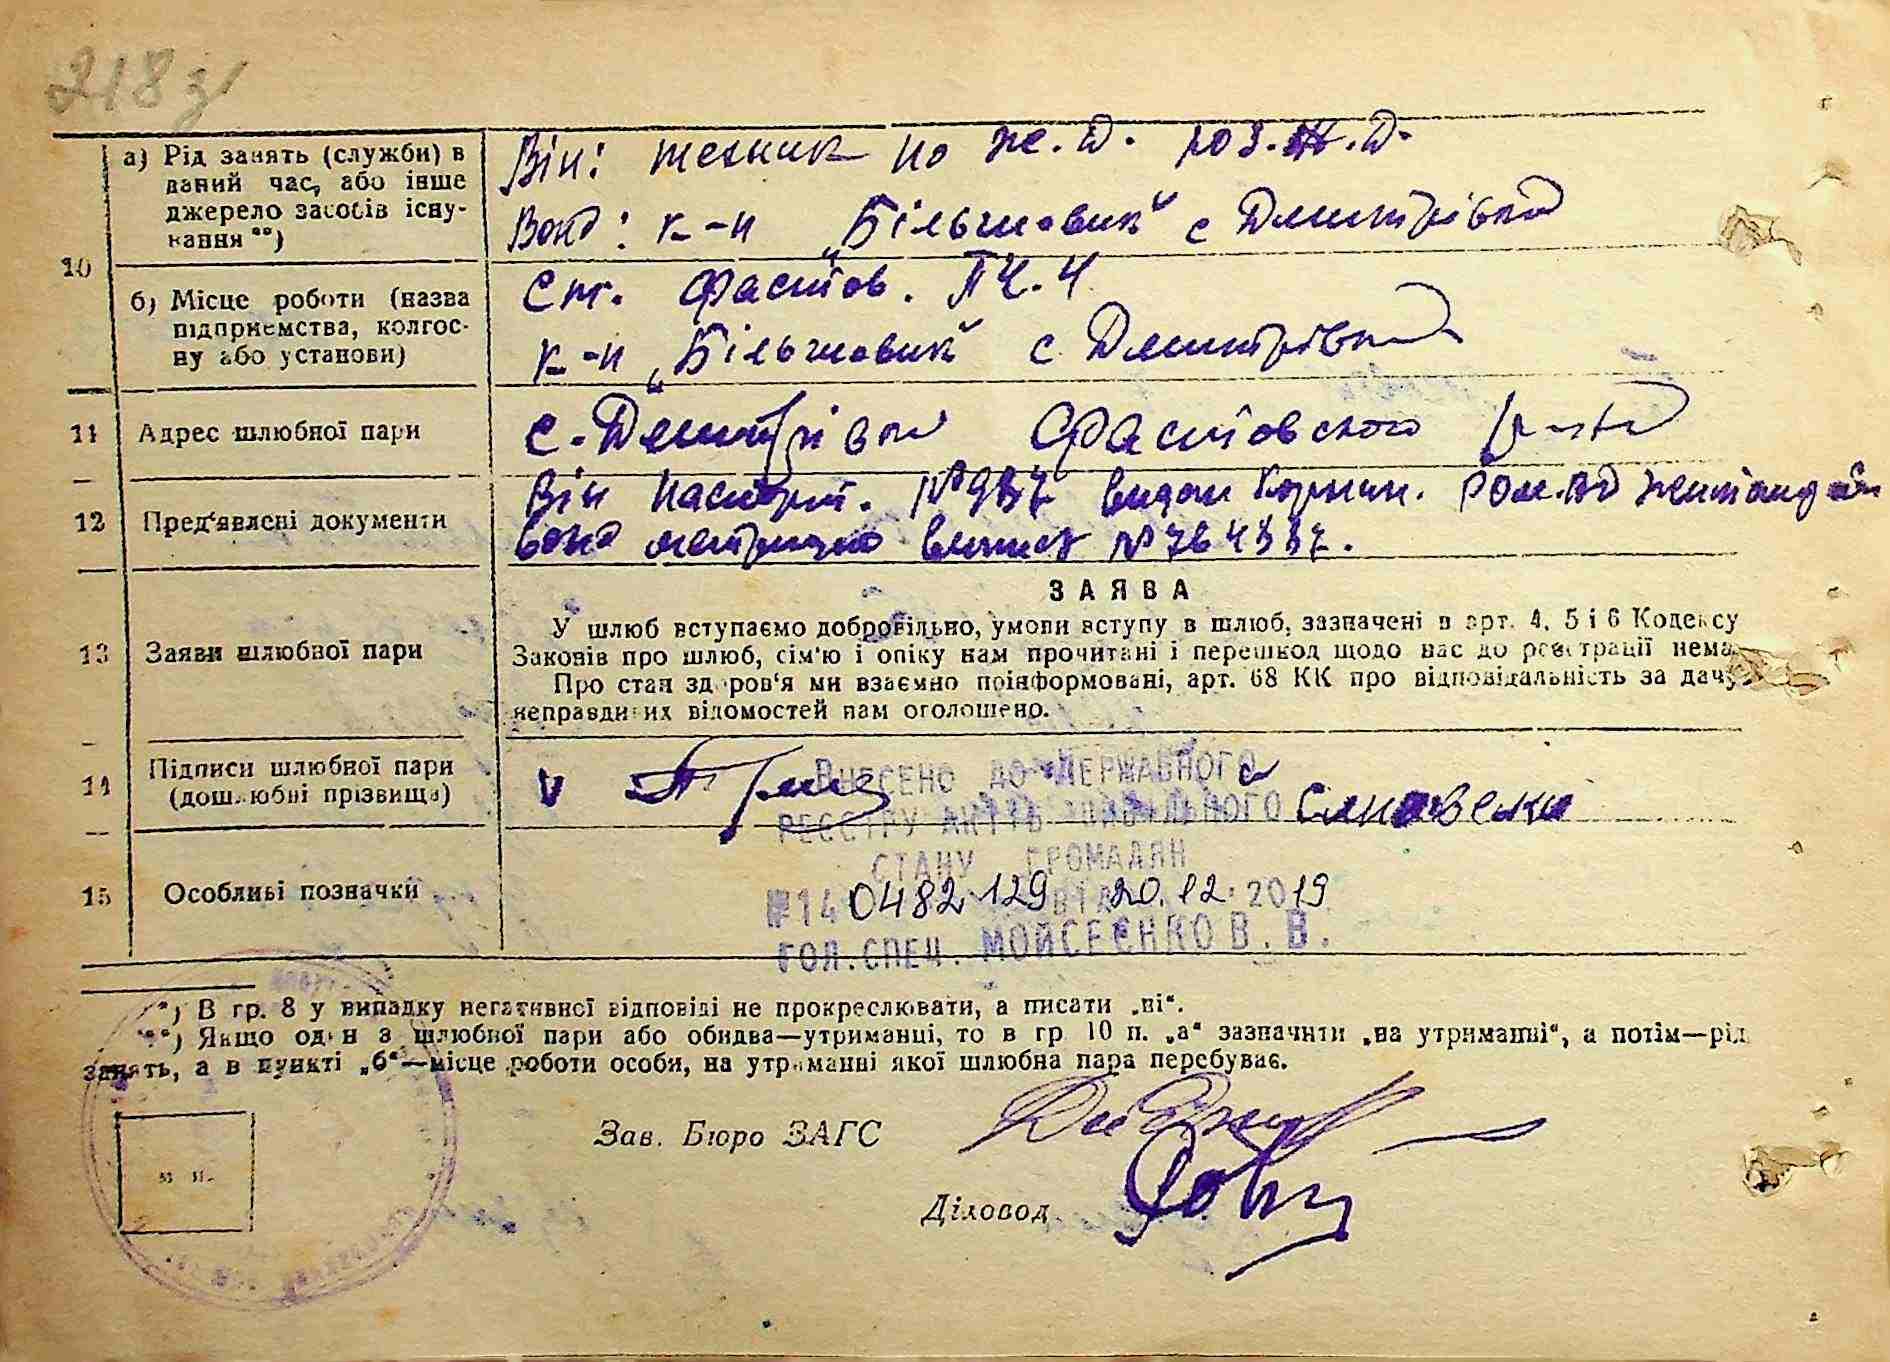 218 з
10
а) Рід занять (служби) в
даний час, або інше
джерело засобів існу-
вання **)
Він: технік по ж.д.
Вона: к-п „Більшовик“ с Дмитрівка
б) Місце роботи (назва
підприємства, колгос-
пу або установи)
Ст. Фастов. ПЧ. 4
к-п „Більшовик“ с. Дмитрівка
11 Адрес шлюбної пари
с. Дмитрівка Фастовского
12 Пред'явлені документи
Він паспорт. видан Корнин.
вона метрична № 764887.
13 Заяви шлюбної пари
ЗАЯВА
У шлюб вступаємо добровільно, умови вступу в шлюб, зазначені в арт. 4, 5 і 6 Кодексу
Законів про шлюб, сім'ю і опіку нам прочитані і перешкод щодо нас до реєстрації нема.
Про стан здоров'я ми взаємно поінформовані, арт. 68 КК про відповідальність за дачу
неправдивих відомостей нам оголошено.
14 Підписи шлюбної пари
(дошлюбні прізвища)
v
15 Особливі позначки
ВНЕСЕНО ДО ДЕРЖАВНОГО
РЕЄСТРУ АКТІВ ЦИВІЛЬНОГО
СТАНУ ГРОМАДЯН
№14 0482129 ВІД 20.12.2019
ГОЛ.СПЕЦ. МОЙСЕЄНКО В. В.
*) В гр. 8 у випадку негативної відповіді не прокреслювати, а писати „ні“.
**) Якщо один з шлюбної пари або обидва—утриманці, то в гр 10 п. „а“ зазначити „на утриманні“, а потім—рід
занять, а в пункті „б“—місце роботи особи, на утриманні якої шлюбна пара перебуває.
Зав. Бюро ЗАГС
Діловод
М. П.